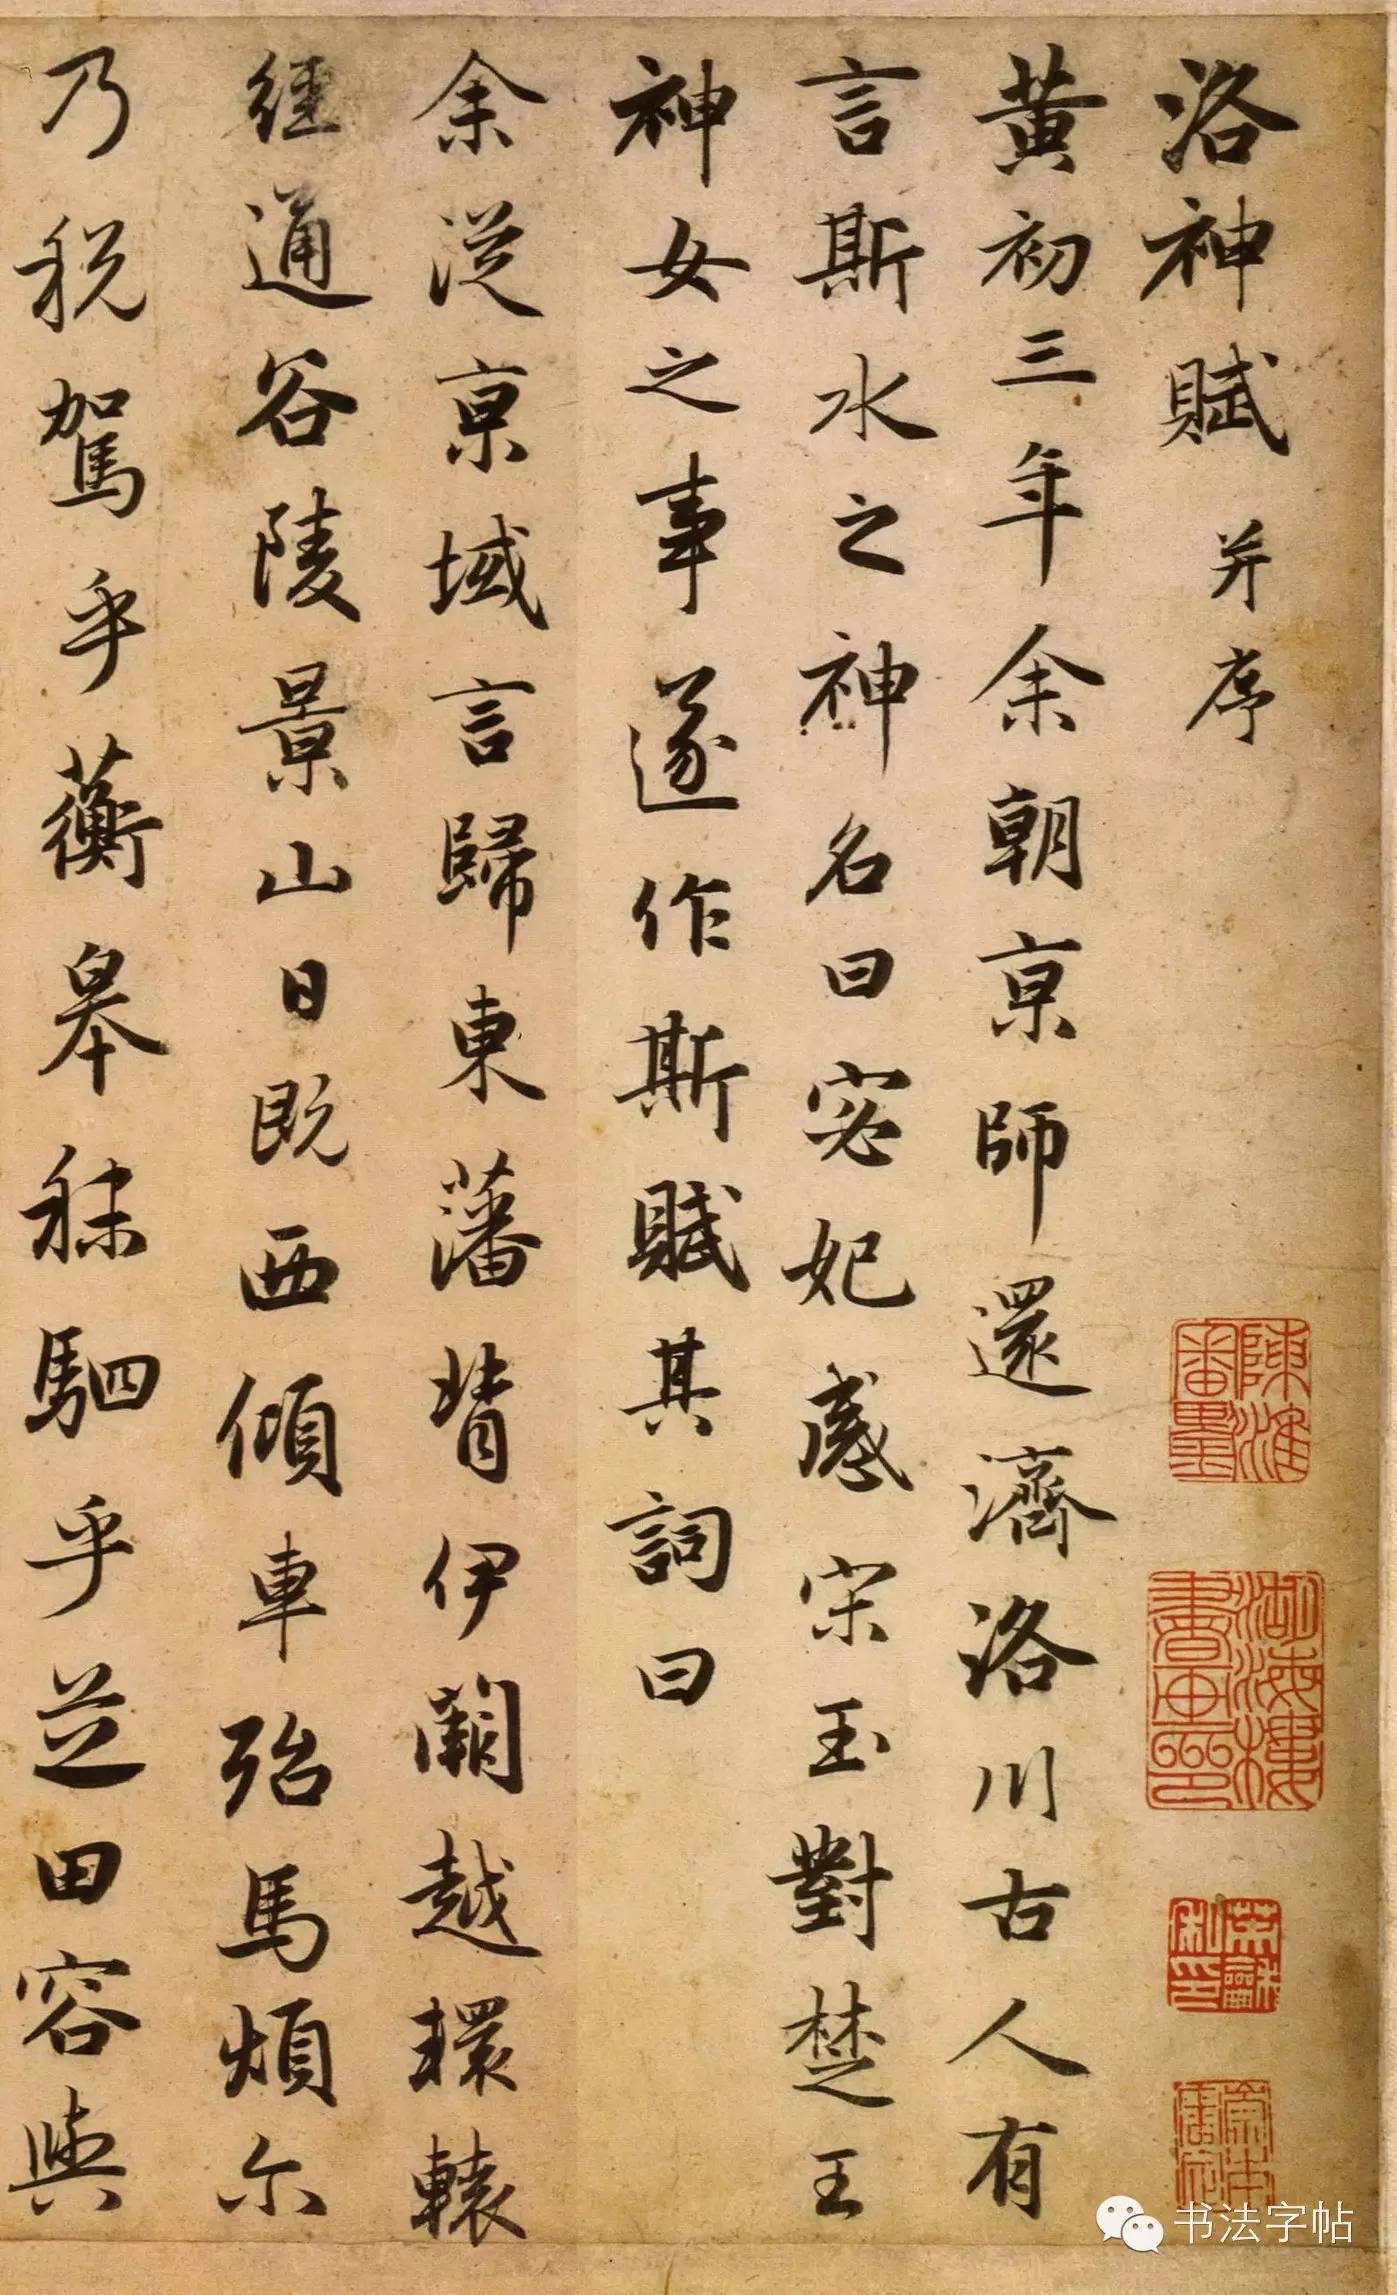 洛神賦 并序
黄初三年余朝亰師還濟洛川古人有
言斯水之神名曰宓妃感宋玉對楚王
神女之事遂作斯賦其詞曰
余從亰域言歸東藩背伊闕越轘轅
經通谷陵景山日既西傾車殆馬煩尔
乃税駕乎蘅皋秣駟乎芝田容與
书法字帖